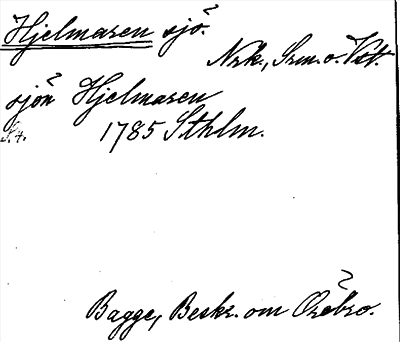 Hjelmaren sjö.
Nrk., Srm. o. Vst.
sjön Hjelmaren
S. 4. 1785 Sthlm.
Bagge, Beskr. om Örebro.